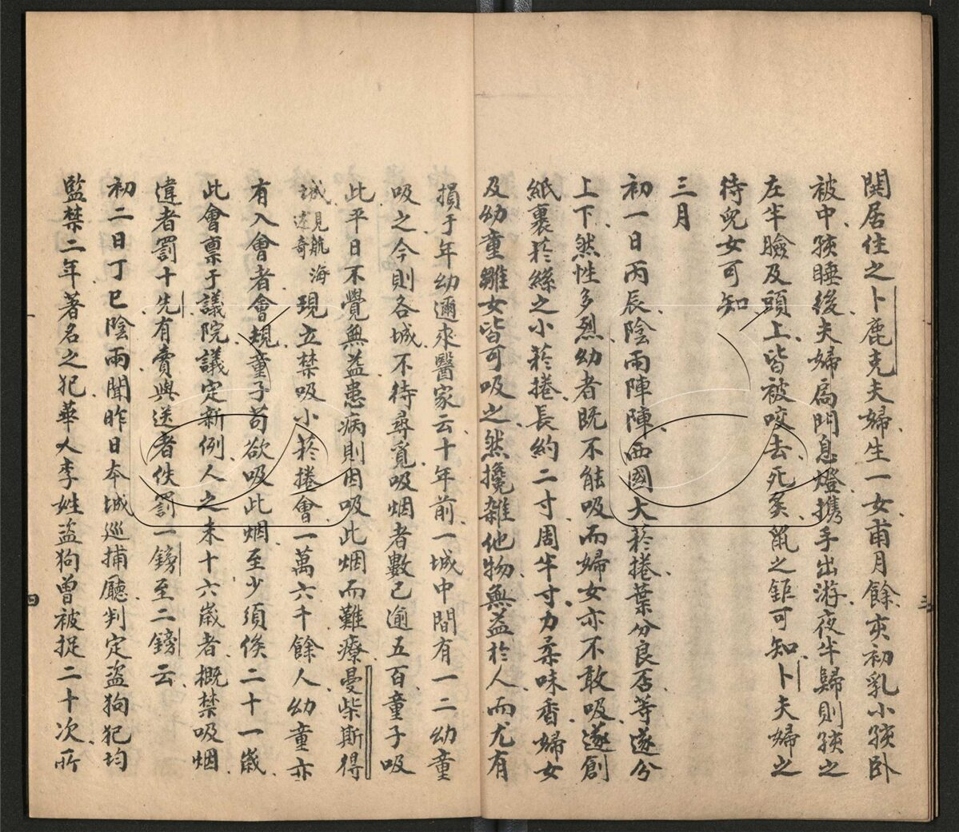 閧居住之卜鹿克夫婦生一女甫月餘亥初乳小孩臥
被中孩睡後夫婦扃門息燈攜手出游夜半歸則孩之
左半臉及頭上皆被咬去死矣鼠之鉅可知卜夫婦之
待兒女可知
三月
初一日丙辰陰雨陣陣西國大菸捲葉分良否等遂分
上下然性多烈幼者既不能吸而婦女亦不敢吸遂創
紙裹菸絲之小菸捲長約二寸周半寸力柔味香婦女
及幼童雛女皆可吸之然攙雜他物無益於人而尤有
損于年幼邇來醫家云十年前一城中間有一二幼童
吸之今則各城不待尋覓吸烟者數已逾五百童子吸
此平日不覺無益患病則因吸此烟而難療曼柴斯得
城見航海述奇現立禁吸小菸捲會一萬六千餘人幼童亦
有入會者會規童子苟欲吸此烟至少須俟二十一歲
此會稟于議院議定新例人之未十六歲者概禁吸烟
違者罰十先有賣與送者佚罰一鎊至二鎊云
初二日丁巳陰雨聞昨日本城巡捕廳判定盜狗犯均
監禁二年著名之犯華人李姓盜狗曾被捉二十次所
三
四